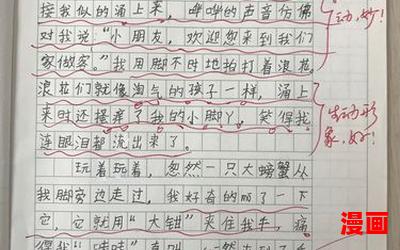 接我似的涌上来，哗哗的声音仿佛
对我说："小朋友，欢迎您来到我们
家做客。"我用脚不时地拍打着浪花。
浪花们就像淘气的孩子一样，涌上
来时还搔痒了我的小脚丫，笑得我
连眼泪都流出来了。
玩着玩着，忽然一只大螃蟹从
我脚旁边走过，我好奇的顺了一下
它，它就用"大钳"夹住我手，痛
得我"哇哇"直叫
动，妙！
生动形
象，好！
漫画